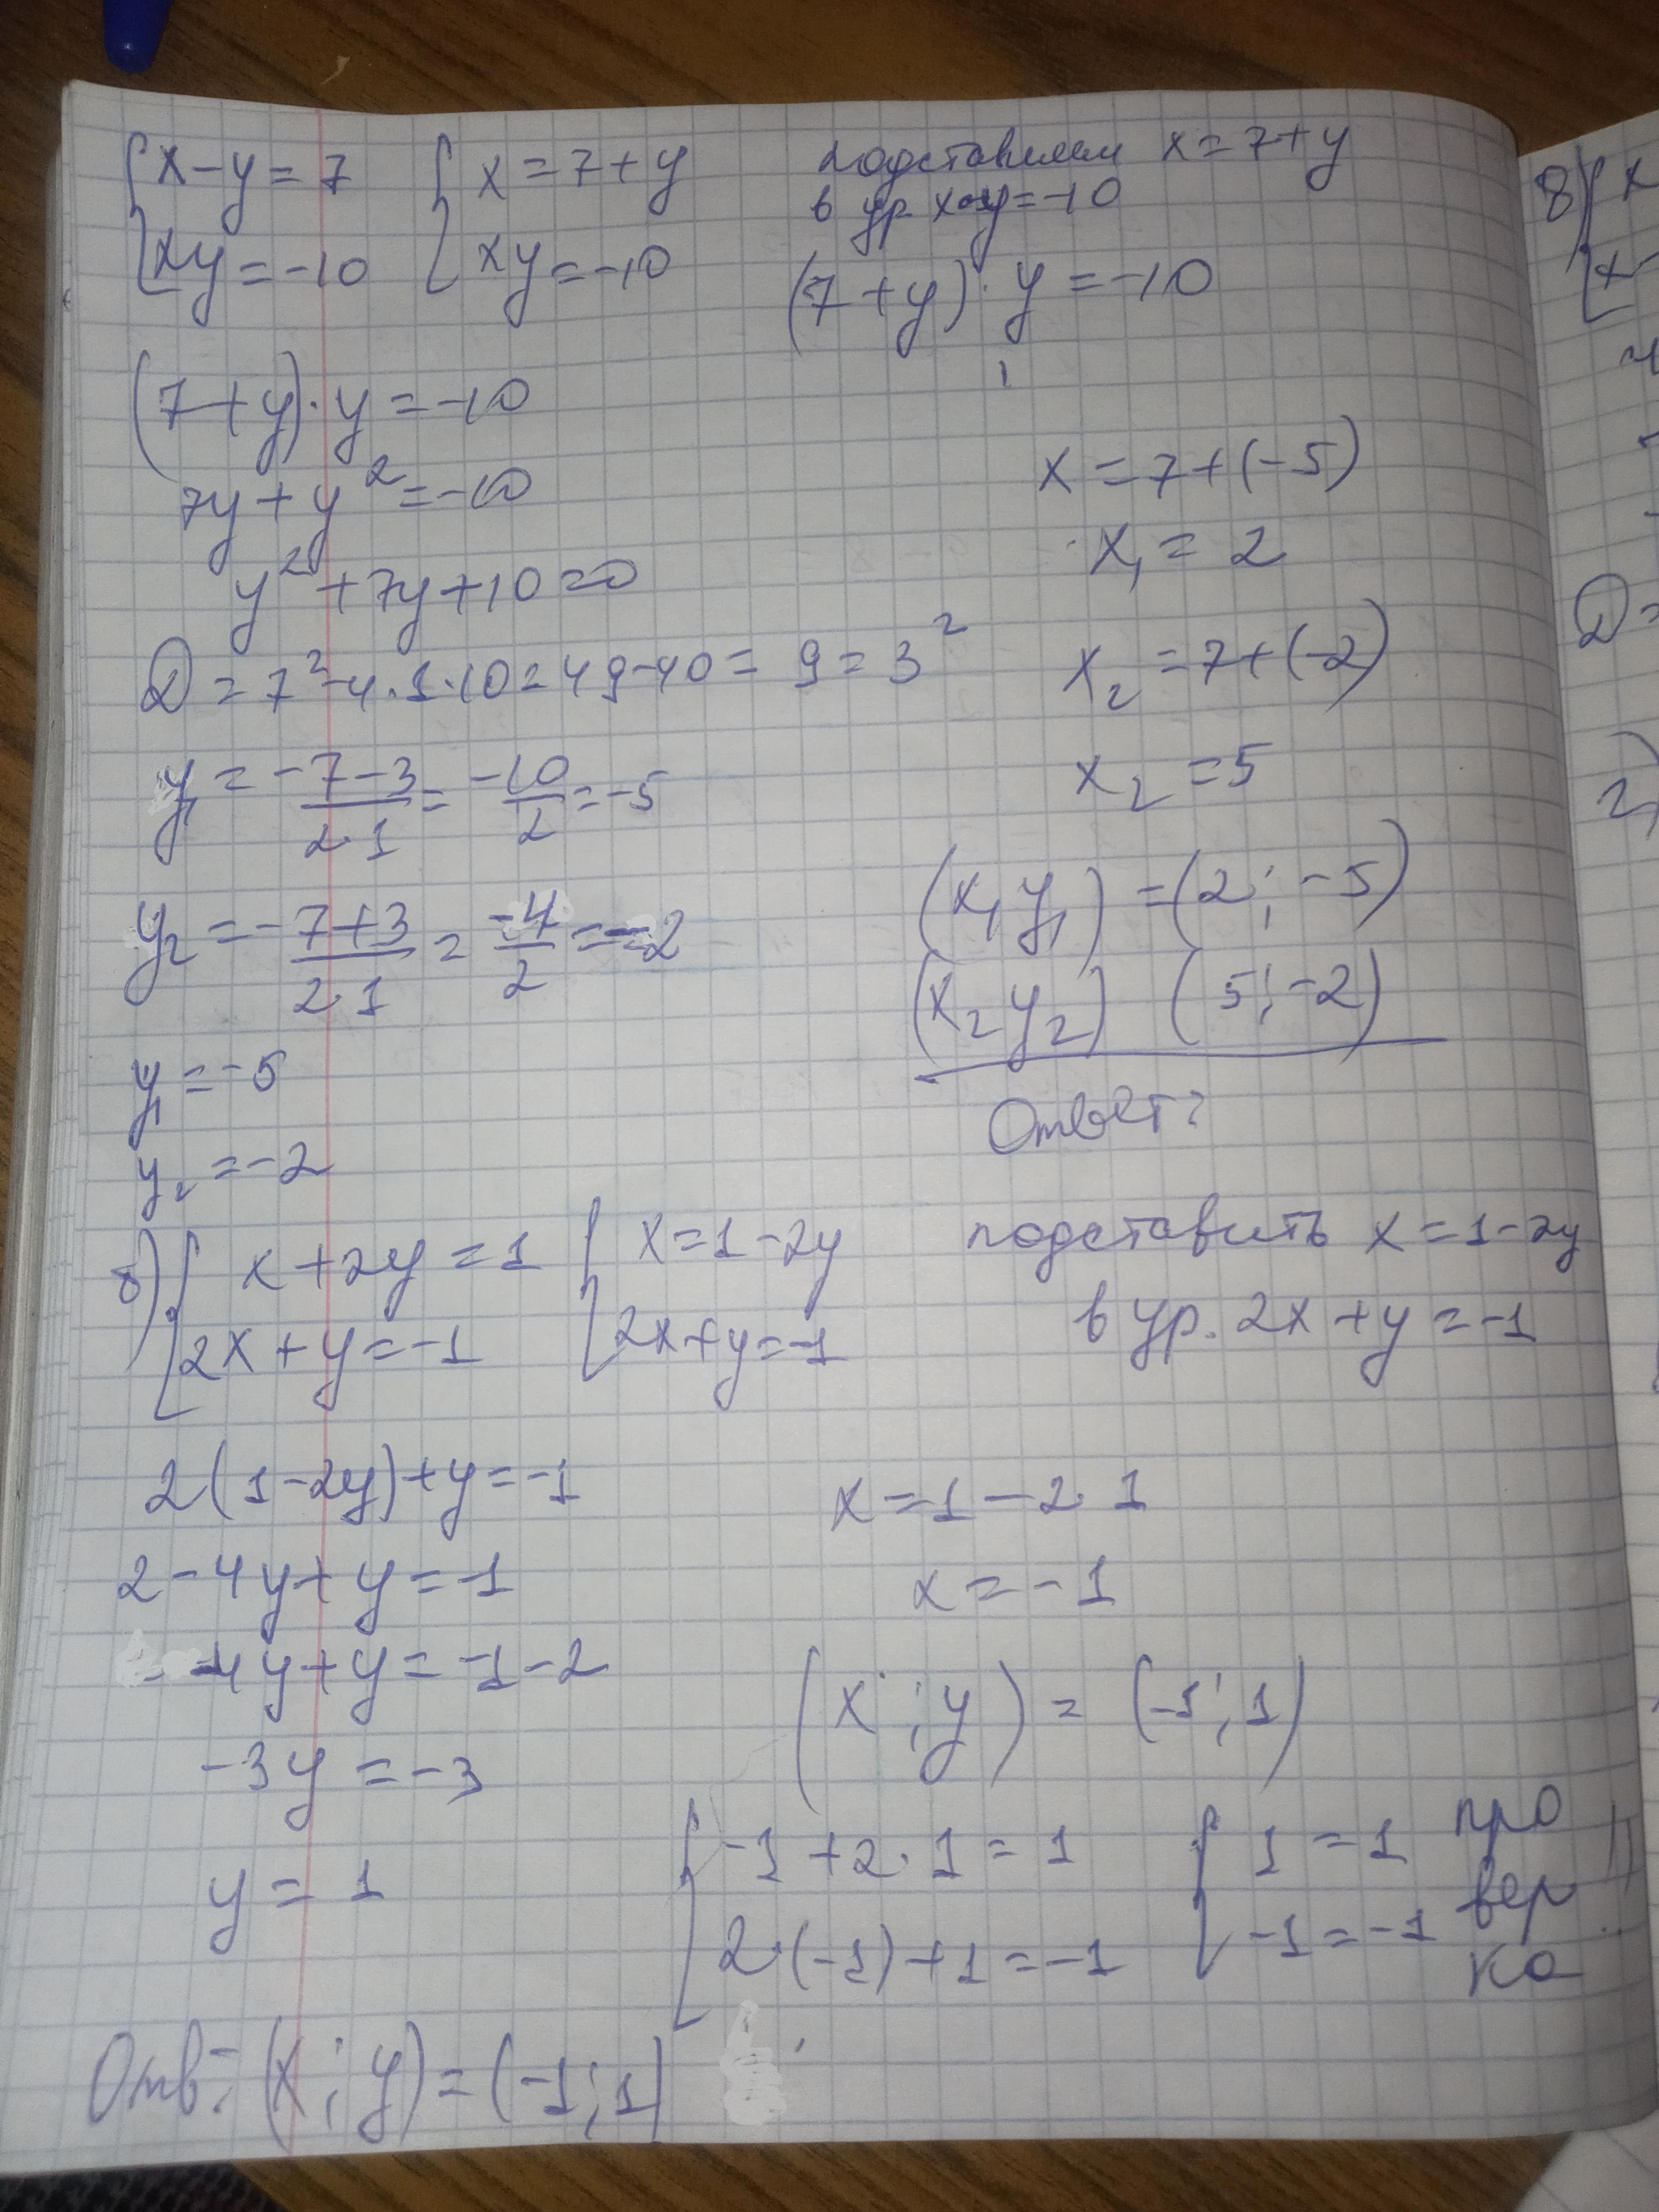 {x-y=7 {x=7+y подставим x=7+y
{xy=-10 {xy=-10 в ур. x·y=-10
(7+y)·y=-10
(7+y)·y=-10
7y+y²=-10
y²+7y+10=0
D=7²-4·1·10=49-40=9=3²
y₁=-7-3/2·1=-10/2=-5
y₂=-7+3/2·1=-4/2=-2
y₁=-5
y₂=-2
x=7+(-5)
x₁=2
x₂=7+(-2)
x₂=5
(x₁y₁)=(2;-5)
(x₂y₂) (5;-2)
Ответ?
б) {x+2y=1 {x=1-2y подставить x=1-2y
{2x+y=-1 {2x+y=-1 в ур. 2x+y=-1
2(1-2y)+y=-1
2-4y+y=-1
-4y+y=-1-2
-3y=-3
y=1
x=1-2·1
x=-1
(x;y)=(-1;1)
{-1+2·1=1 {1=1 про
вер
{2·(-1)+1=-1 {-1=-1 ка
Отв: (x;y)=(-1;1)
8) {x
{x-
D=
2)